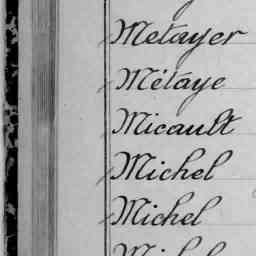 Metayer
Métaye
Micault
Michel
Michel